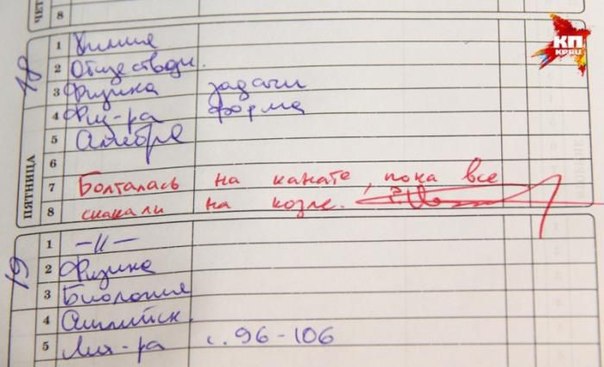 ЧЕТ
8
КП
KP.RU
18
ПЯТНИЦА
1 Химия
2 Обществозн.
3 Физика задачи
4 Физ-ра форма
5 Алгебра
6
7 Болталась на канате, пока все
8 скакали на козле.
19
1 —||—
2 Физика
3 Биология
4 Английск.
5 Лит-ра с. 96-106